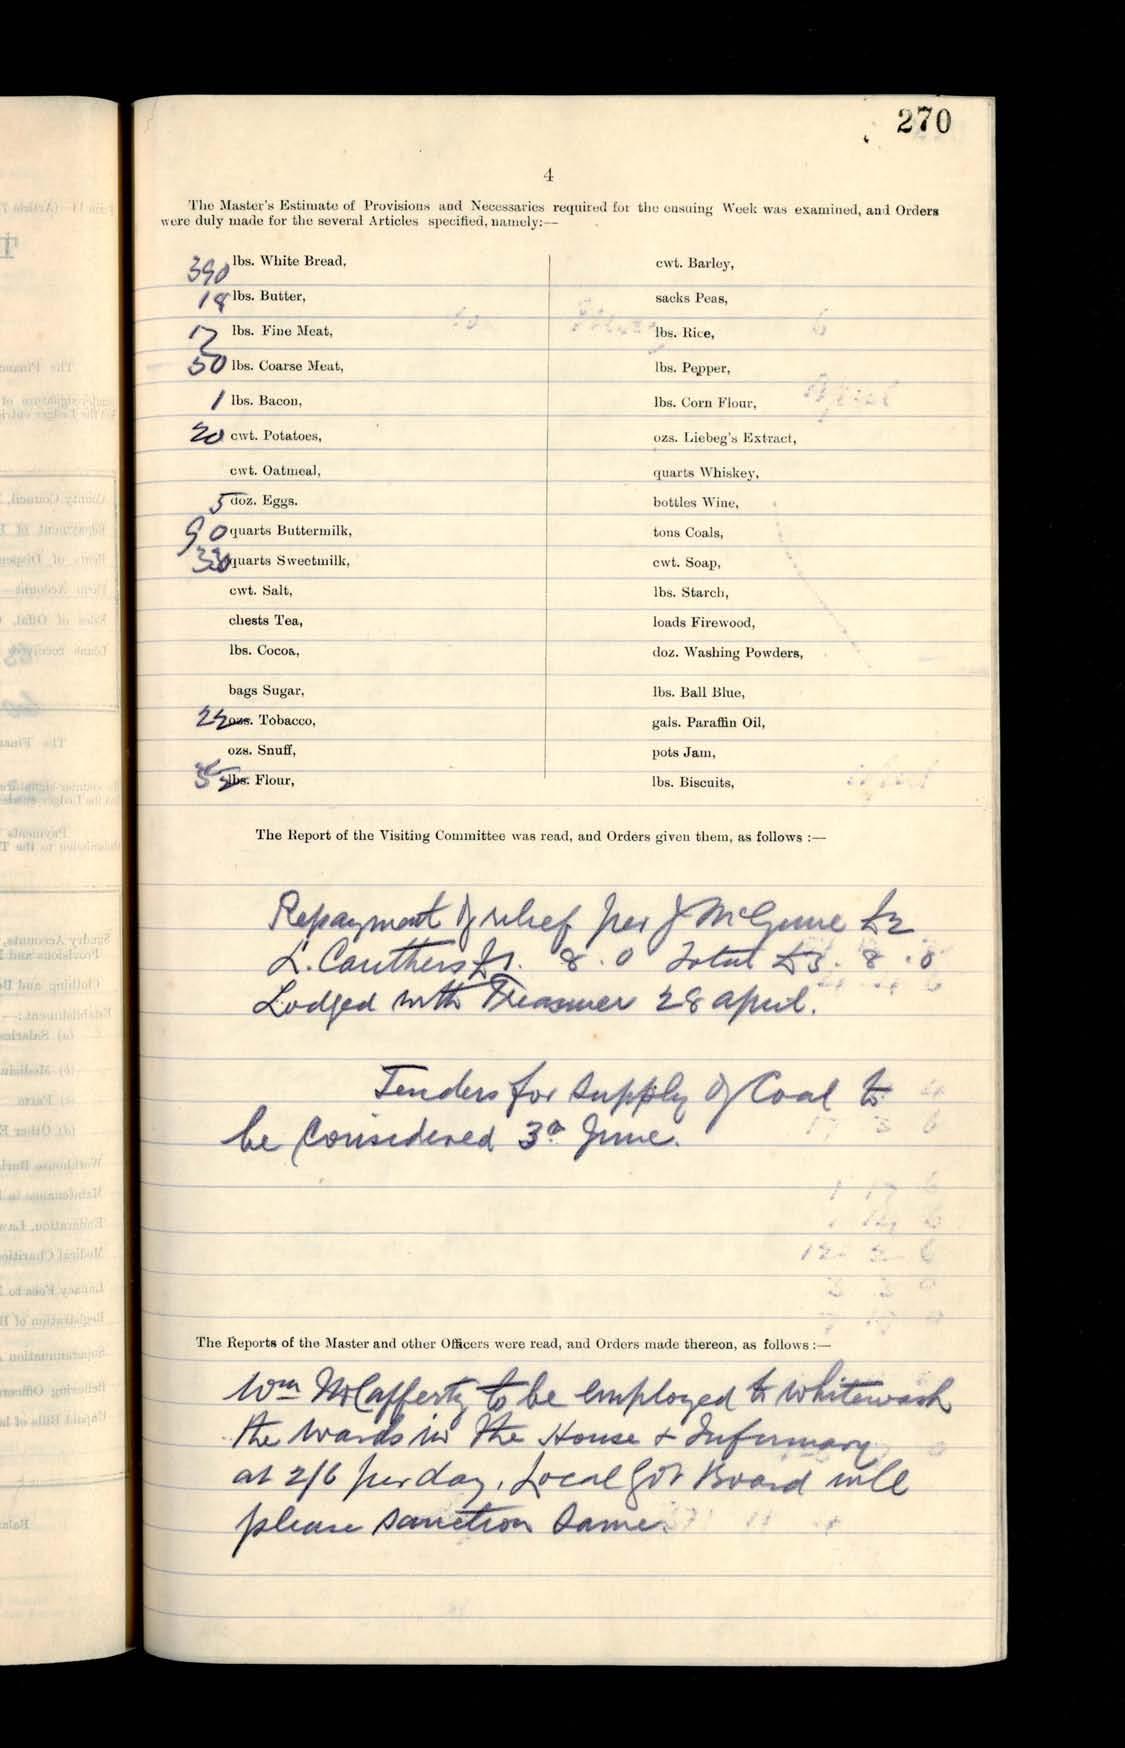 270
4
The Master's Estimate of Provisions and Necessaries required for the ensuing Week was examined, and Orders
were duly made for the several Articles specified, namely:—
390 lbs. White Bread,
18 lbs. Butter,
17 lbs. Fine Meat,
50 lbs. Coarse Meat,
1 lbs. Bacon,
20 cwt. Potatoes,
cwt. Oatmeal,
5 doz. Eggs.
90 quarts Buttermilk,
330 quarts Sweetmilk,
cwt. Salt,
chests Tea,
lbs. Cocoa,
bags Sugar,
22 ozs. Tobacco,
ozs. Snuff,
35 lbs. Flour,
cwt. Barley,
sacks Peas,
lbs. Rice,
lbs. Pepper,
lbs. Corn Flour,
ozs. Liebeg's Extract,
quarts Whiskey,
bottles Wine,
tons Coals,
cwt. Soap,
lbs. Starch,
loads Firewood,
doz. Washing Powders,
lbs. Ball Blue,
gals. Paraffin Oil,
pots Jam,
lbs. Biscuits,
The Report of the Visiting Committee was read, and Orders given them, as follows :—
Repayment of relief per J McGuire £2
L. Cauthers £1. 8. 0 Total £3. 8. 0
Lodged with Treasurer 28 april.
Tenders for supply of Coal to
be considered 3d June.
The Reports of the Master and other Officers were read, and Orders made thereon, as follows :—
Wm McCafferty to be employed to whitewash
the wards in the House & Infirmary
at 2/6 per day, Local Govt Board will
please sanction same